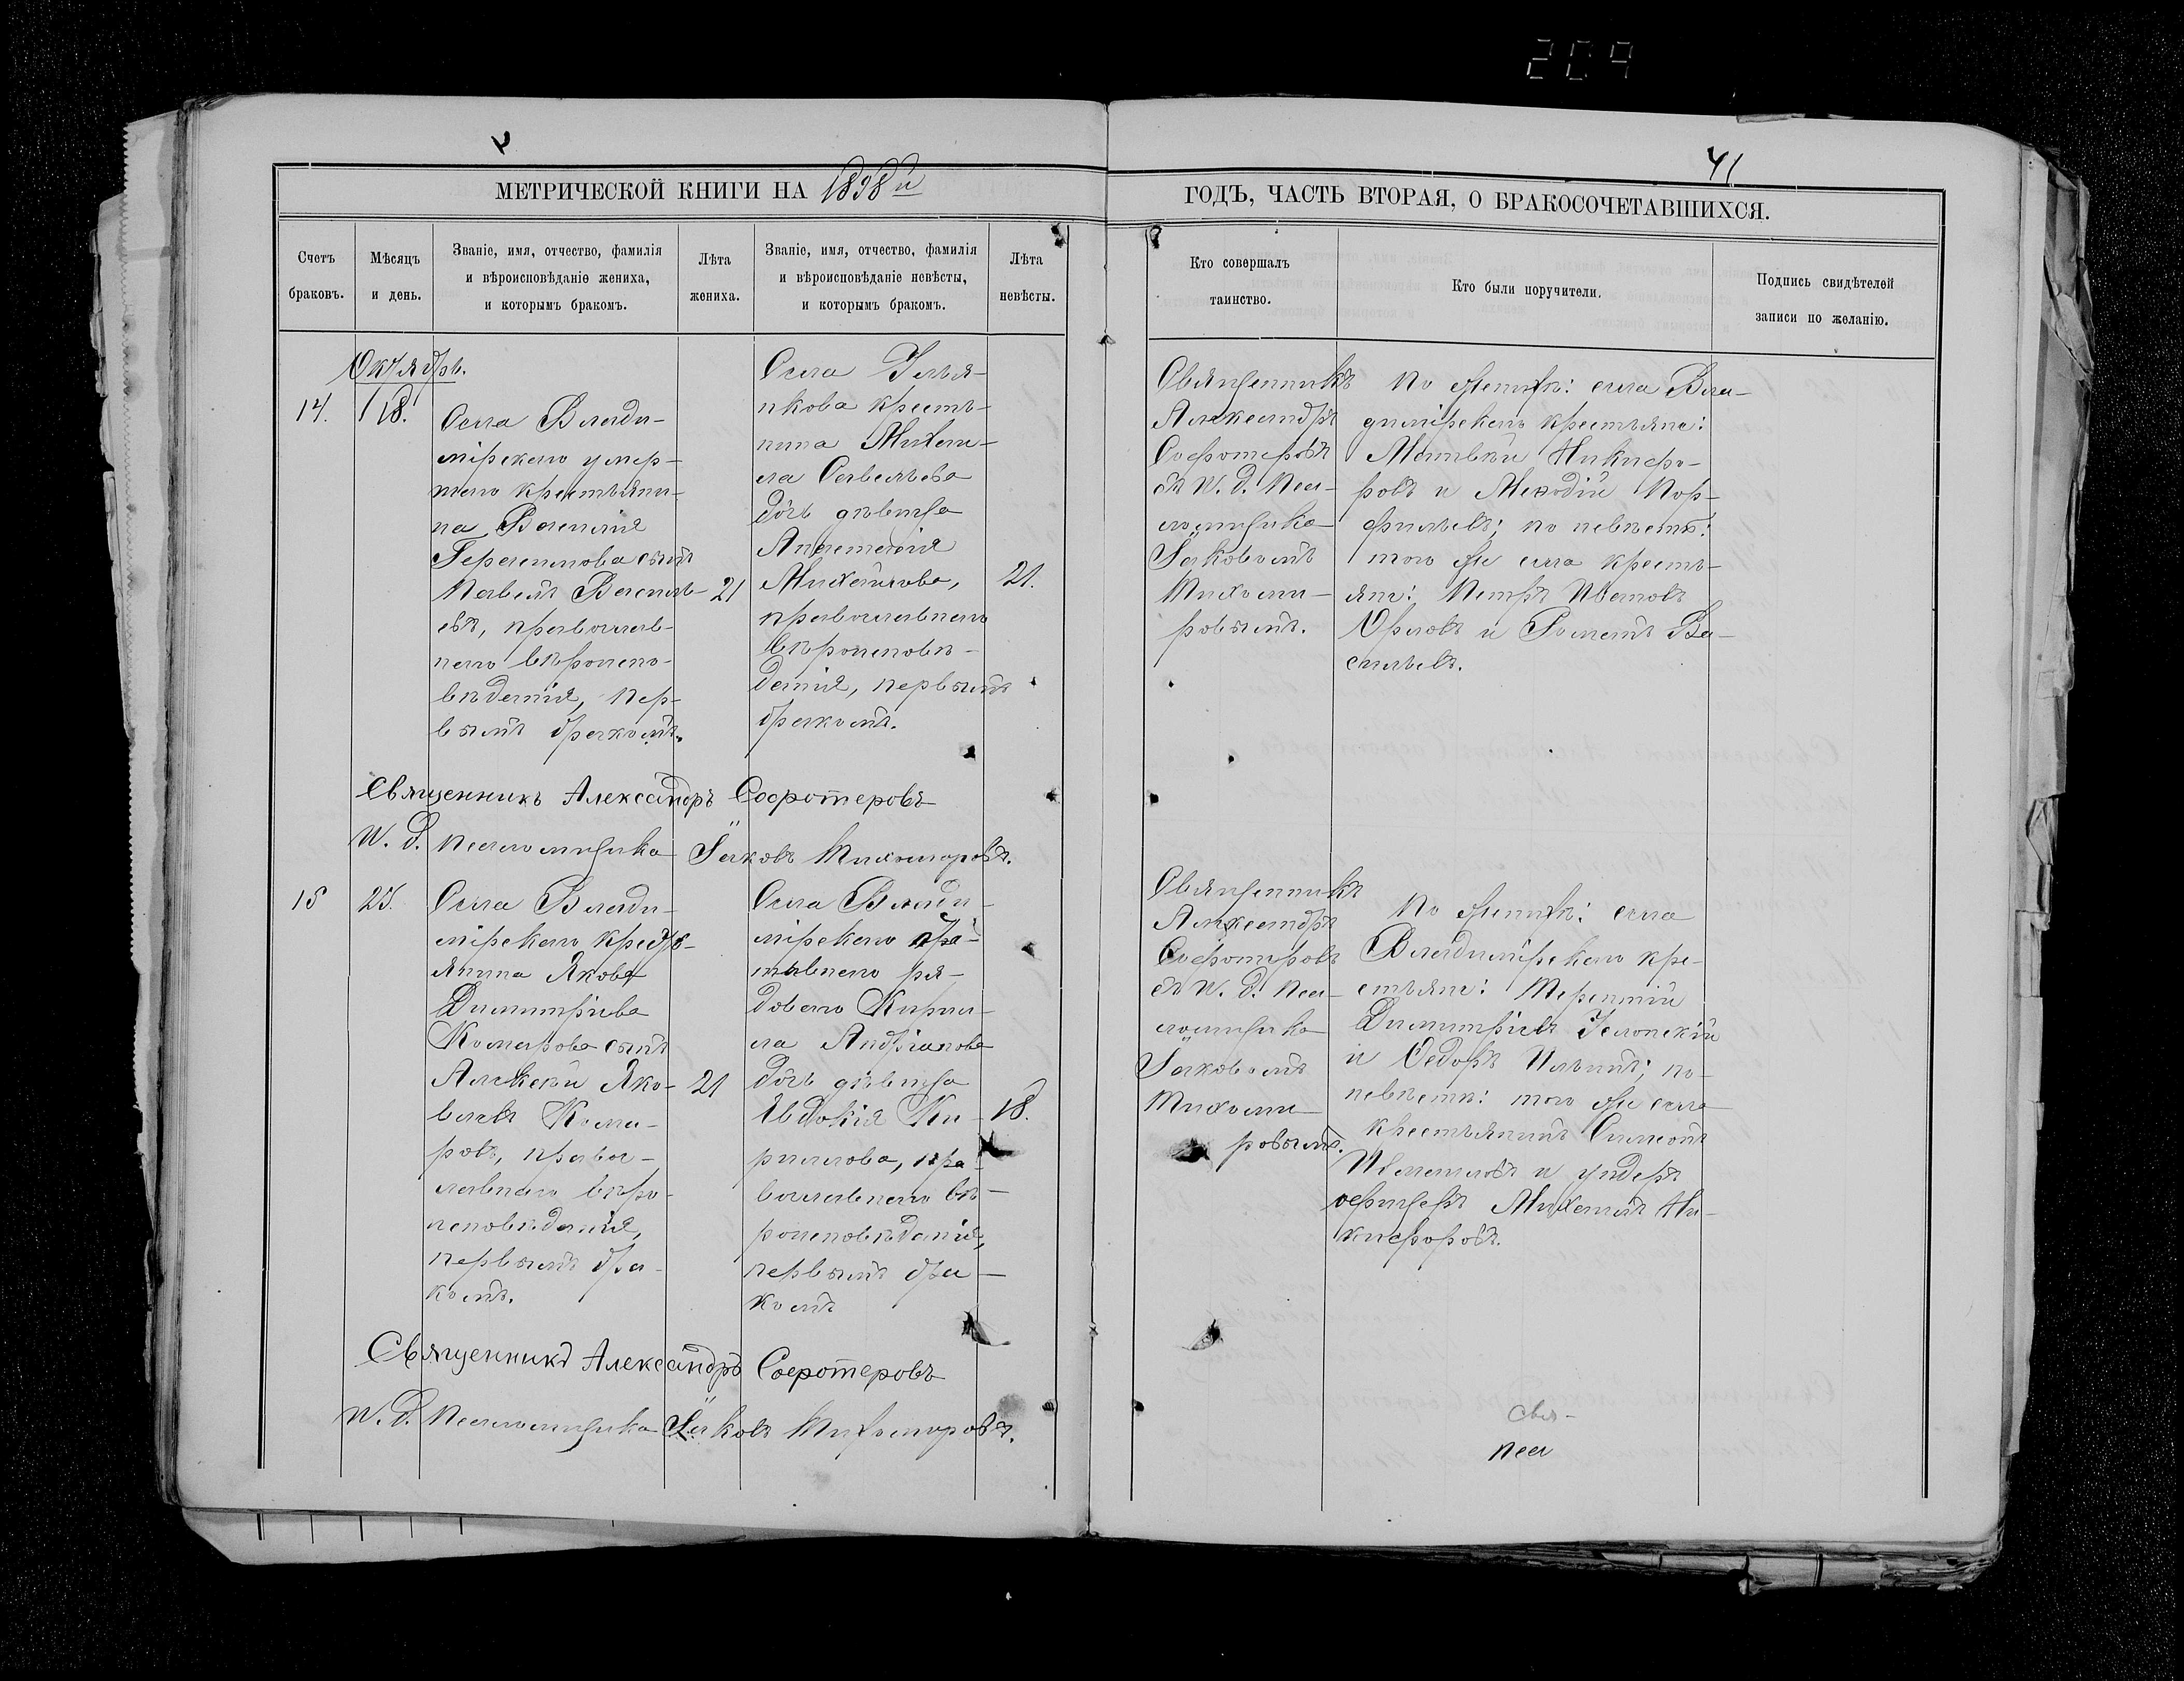 204
41
МЕТРИЧЕСКОЙ КНИГИ НА 1898й
ГОДЪ, ЧАСТЬ ВТОРАЯ, О БРАКОСОЧЕТАВШИХСЯ.
Счетъ браковъ.
Мѣсяцъ и день.
Званіе, имя, отчество, фамилія
и вѣроисповѣданіе жениха,
и которымъ бракомъ.
Лѣта жениха.
Званіе, имя, отчество, фамилія
и вѣроисповѣданіе невѣсты,
и которымъ бракомъ.
Лѣта невѣсты.
Кто совершалъ
таинство.
Кто были поручители.
Подпись свидѣтелей
записи по желанію.
Октябрь.
14.
18.
Села Влади-
мірскаго умер-
шаго крестьяни-
на Василія
Герасимова сынъ
Павелъ Василь-
евъ, православ-
наго вѣроиспо-
вѣданія, пер-
вымъ бракомъ.
21
Села
нкова кресть-
нина Михаи-
ла Савельева
дочь дѣвица
Анастасія
Михайлова,
православнаго
вѣроисповѣ-
данія, первымъ
бракомъ.
21.
Священникъ
Александръ
Сосфотеровъ
съ И. д. Пса-
ломщика
Іаковомъ
Тихоми-
ровымъ.
По женихѣ: села Вла-
димірскаго крестьяне:
Матвѣй Никифо-
ровъ и Меѳодій Пор-
фирьевъ; по невѣстѣ:
того же села кресть-
яне: Петръ Ивановъ
Орловъ и Романъ Ва-
сильевъ.
Священникъ Александръ Сосфотеровъ
И. д. Псаломщика Іаковъ Тихомировъ.
15
25.
Села Влади-
мірскаго кресть-
янина Якова
Димитріева
Комарова сынъ
Алексѣй Яко-
влевъ Кома-
ровъ, правос-
лавнаго вѣро-
исповѣданія,
первымъ бра-
комъ.
21
Села Влади-
мірскаго
ставнаго ря-
доваго Кирил-
ла Андріанова
дочь дѣвица
Евдокія Ки-
риллова, пра-
вославнаго вѣ-
роисповѣданія,
первымъ бра-
комъ
18.
Священникъ
Александръ
Сосфотеровъ
съ И. д. Пса-
ломщика
Іаковомъ
Тихоми-
ровымъ.
По женихѣ: села
Владимірскаго кре-
стьяне: Терентій
Димитріевъ
и Ѳедоръ Ильинъ; по
невѣстѣ: того же села
крестьянинъ Симеонъ
и ундеръ
офицеръ Михаилъ Ни-
кифоровъ.
Священникъ Александръ Сосфотеровъ
И. д. Псаломщика Іаковъ Тихомировъ.
Свя-
Пса